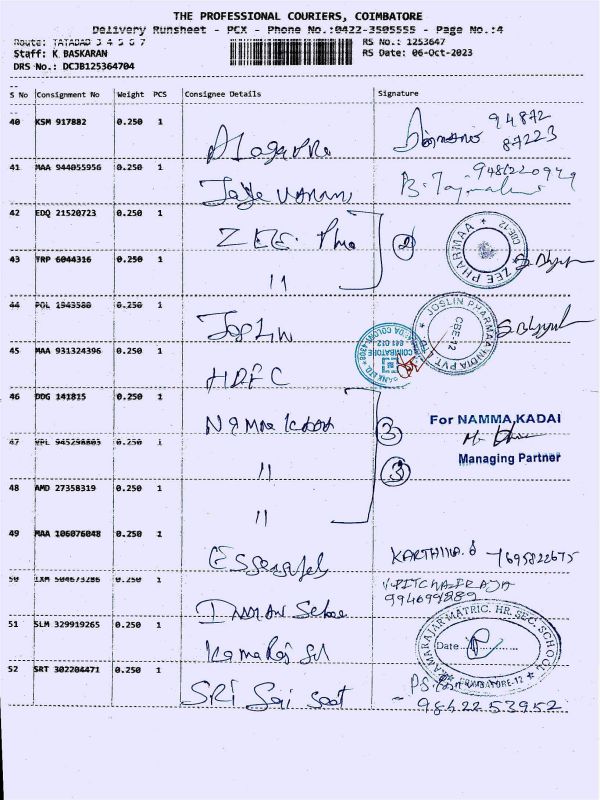 THE PROFESSIONAL COURIERS, COIMBATORE
Delivery Runsheet - PCX - Phone No.:0422-3505555 - Page No.:4
Route: TATABAD 3 4 5 6 7
RS No.: 1253647
Staff: K BASKARAN
RS Date: 06-Oct-2023
DRS No.: DCJB125364704
S No Consignment No Weight PCS Consignee Details Signature
40 KSM 917882 0.250 1
94872
87223
41 MAA 944055956 0.250 1
42 EDQ 21520723 0.250 1 ZEE Pha
2
ZEE PHARMAA CBE-12
43 TRP 6044316 0.250 1 11
44 POL 1943580 0.250 1 Joslin
JOSLIN PHARMAA INDIA PVT. LTD. CBE-12
45 MAA 931324396 0.250 1 HDFC
COIMBATORE 641 012
46 DDG 141815 0.250 1 Namma Kadai
3
For NAMMA KADAI
Managing Partner
47 VPL 945298803 0.250 1 11
3
48 AMD 27358319 0.250 1 11
49 MAA 106076048 0.250 1
7695822675
50 IXM 504673286 0.250 1
V.PITCHAIRAJA
51 SLM 329919265 0.250 1 Kamaraj
KAMARAJAR MATRIC. HR. SEC. SCHOOL
Date
COIMBATORE-12
52 SRT 302204471 0.250 1 SRI Sai
9842253952